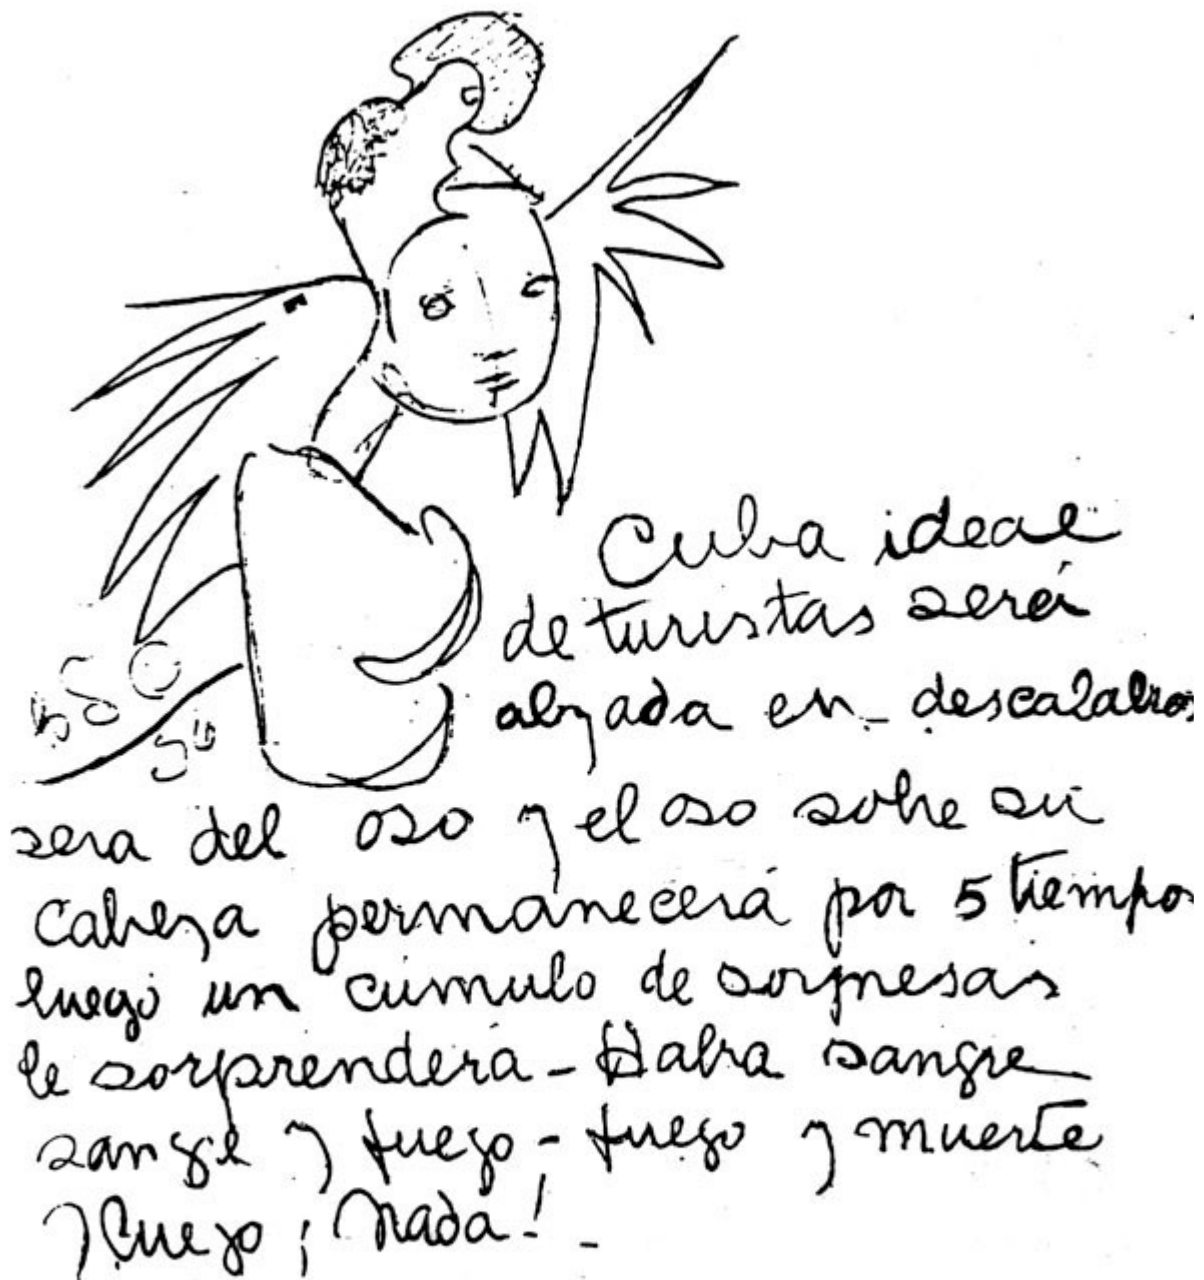 Cuba ideal
de turistas será
alzada en descalabros
sera del oso y el oso sobre su
cabeza permanecerá por 5 tiempos
luego un cúmulo de sorpresas
le sorprenderá - Habra sangre
sangre y fuego - fuego y muerte
y luego ¡ Nada! -